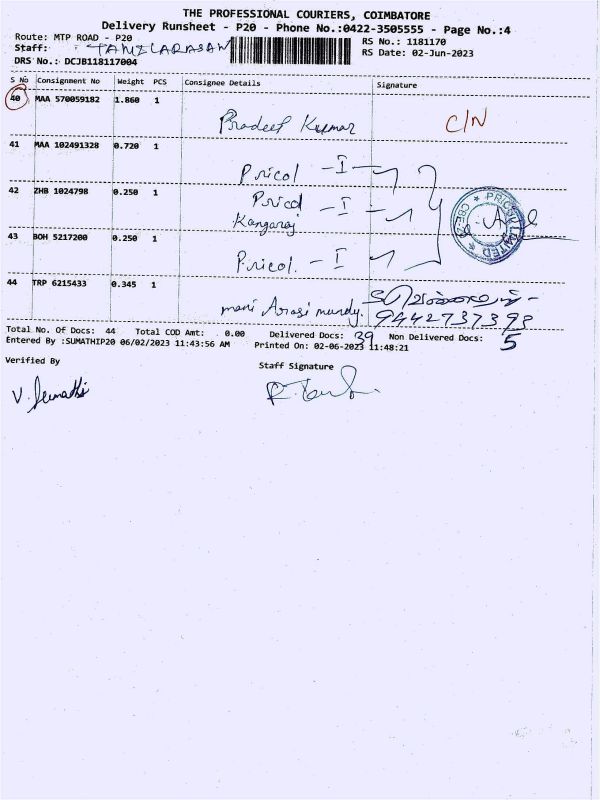 THE PROFESSIONAL COURIERS, COIMBATORE
Delivery Runsheet - P20 - Phone No.:0422-3505555 - Page No.:4
Route: MTP ROAD - P20 RS No.: 1181170
Staff: : TAMILARASAN RS Date: 02-Jun-2023
DRS No.: DCJB118117004
S No Consignment No Weight PCS Consignee Details Signature
40 MAA 570059182 1.860 1
Pradeep Kumar C/N
41 MAA 102491328 0.720 1
Pricol - I
42 ZHB 1024798 0.250 1
Pricol - I
Kangaraj
PRICOL LIMITED
43 BOH 5217200 0.250 1
Pricol. - I
44 TRP 6215433 0.345 1
mani Arasi mundy.
9442737393
Total No. Of Docs: 44 Total COD Amt: 0.00 Delivered Docs: 39 Non Delivered Docs: 5
Entered By :SUMATHIP20 06/02/2023 11:43:56 AM Printed On: 02-06-2023 11:48:21
Verified By Staff Signature
V. Sumathi